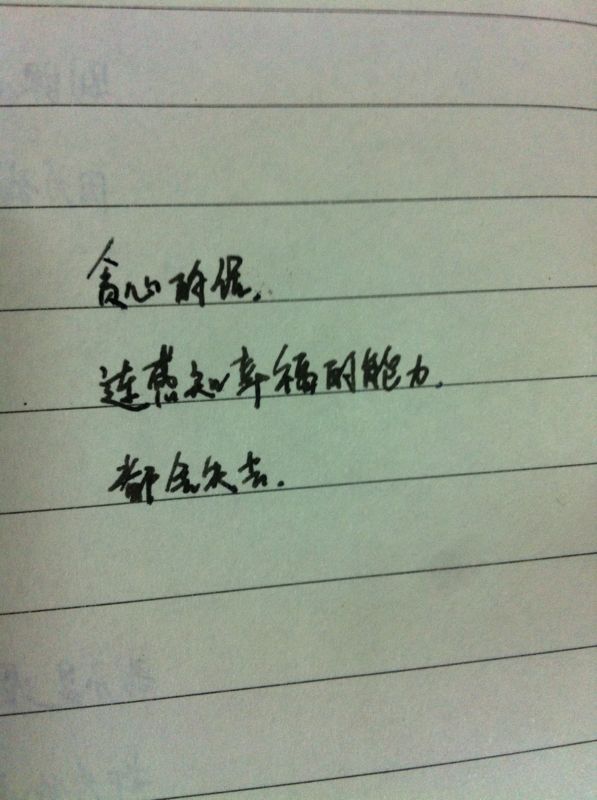 贪心的侣，
连感知幸福的能力，
都会失去．